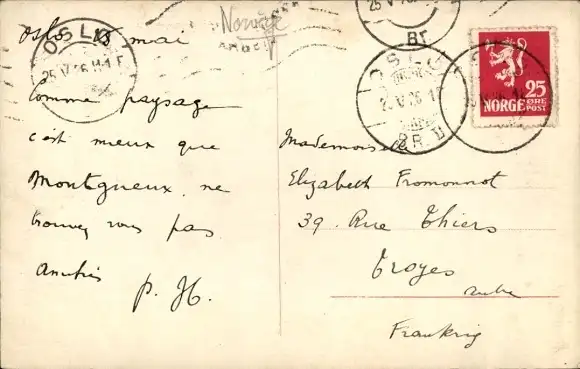 Norvège
OSLO
25 V 26 11-1 F
Oslo 25 mai
Comme paysage
c'est mieux que
Montgueux. ne
trouvez vous pas
Amitiés
P. H.
Br
OSLO
25 V 26 1
BR. B
25
NORGE
ØRE
POST
Mademoiselle
Elizabeth Fromonnot
39. Rue Thiers
Troyes
Aube
Frankrig